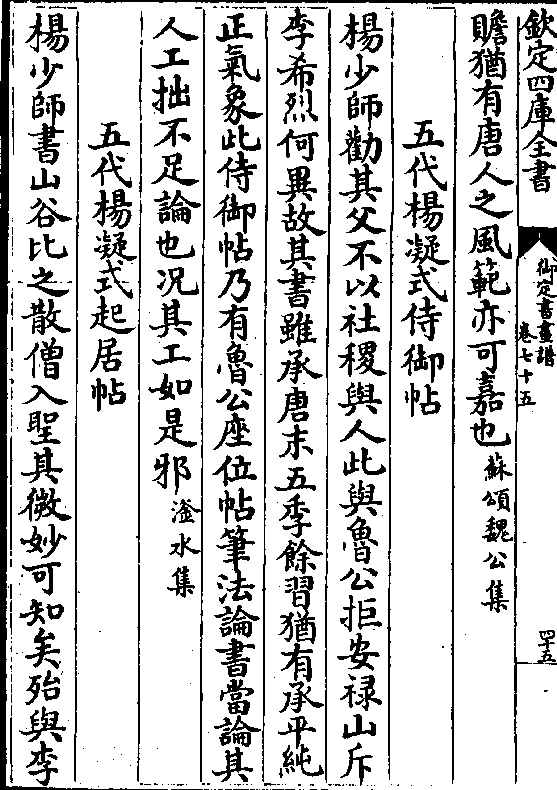 欽定四庫全書
御定書畫譜
卷七十五
四十五
贍猶有唐人之風範亦可嘉也蘇頌魏公集
五代楊凝式侍御帖
楊少師勸其父不以社稷與人此與魯公拒安禄山斥
李希烈何異故其書雖承唐末五季餘習猶有承平純
正氣象此侍御帖乃有魯公座位帖筆法論書當論其
人工拙不足論也況其工如是邪滏水集
五代楊凝式起居帖
楊少師書山谷比之散僧入聖其微妙可知矣殆與李